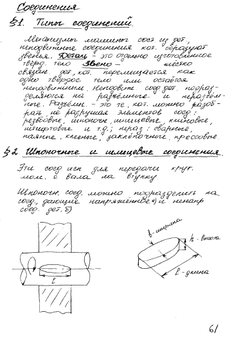 Соединения
§1. Типы соединений.
Механизмы машины сост из дет,
неподвижные соединения кот. образуют
звенья. Деталь - это отдельно изготовленное
тверд. тело Звено - жестко
связан дет, кот. перемещается как
одно твёрдое тело или остаётся
неподвижным. Неподвиж соед дет. подраз-
деляются на разъёмные и неразъём-
ные. Разъёмн. - это те, кот. можно разоб-
рать не разрушая элементов соед:
резьбовые, шпоночн, шлицевые, клиновые,
штифтовые и т.д; неразъ: сварные,
паяные, клееные, заклёпочные, прессовые
§2. Шпоночные и шлицевые соединения
Эти соед исп для передачи крут.
мом. с вала на втулку
Шпоночн соед. можно подразделить на
соед, дающие напряжённое а) и ненапр
соед. дет. б)
b-ширина
h-высот
l-длина
l
6/